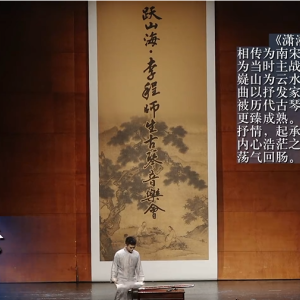 跃山海·李祥霆师生古琴音樂會
《潇湘
相传为南宋
为当时主战
嶷山为云水
曲以抒发家
被历代古琴
更臻成熟。
抒情，起承
内心浩茫之
荡气回肠。